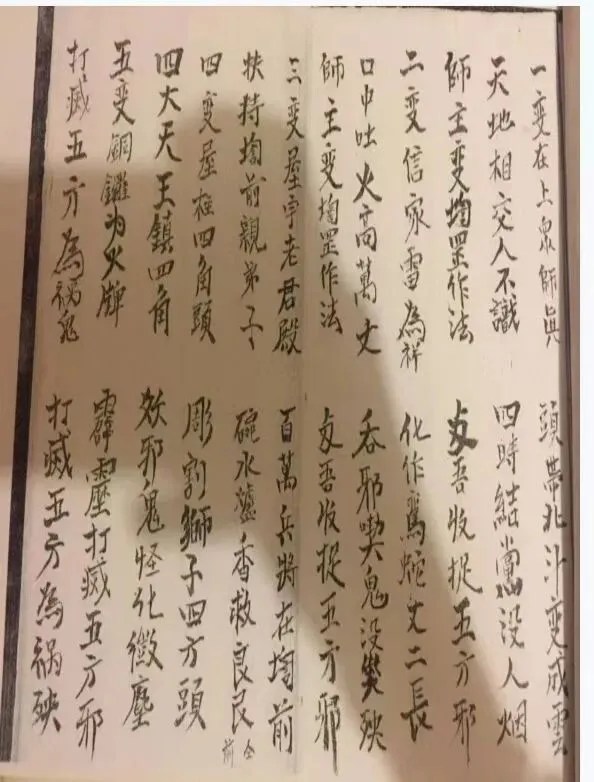 一变在上泉師真 頭帶北斗变成雲
天地相交人不識 四時結黨没人烟
師主变均罡作法 吾收捉五方邪
二变信家雷為祥 化作蛇丈二長
口中吐火高萬丈 吞邪喫鬼没災殃
師主变均罡作法 吾收捉五方邪
三变屋宇老君殿 百萬兵将在均前
扶持均前親弟子 碗水爐香救良民
前全
四变屋柱四角頭 彫割獅子四方頭
四大天王鎮四角 邪鬼怪化微塵
五变銅鑼为火牌 霹靂打滅五方邪
打滅五方為祸鬼 打滅五方為禍殃